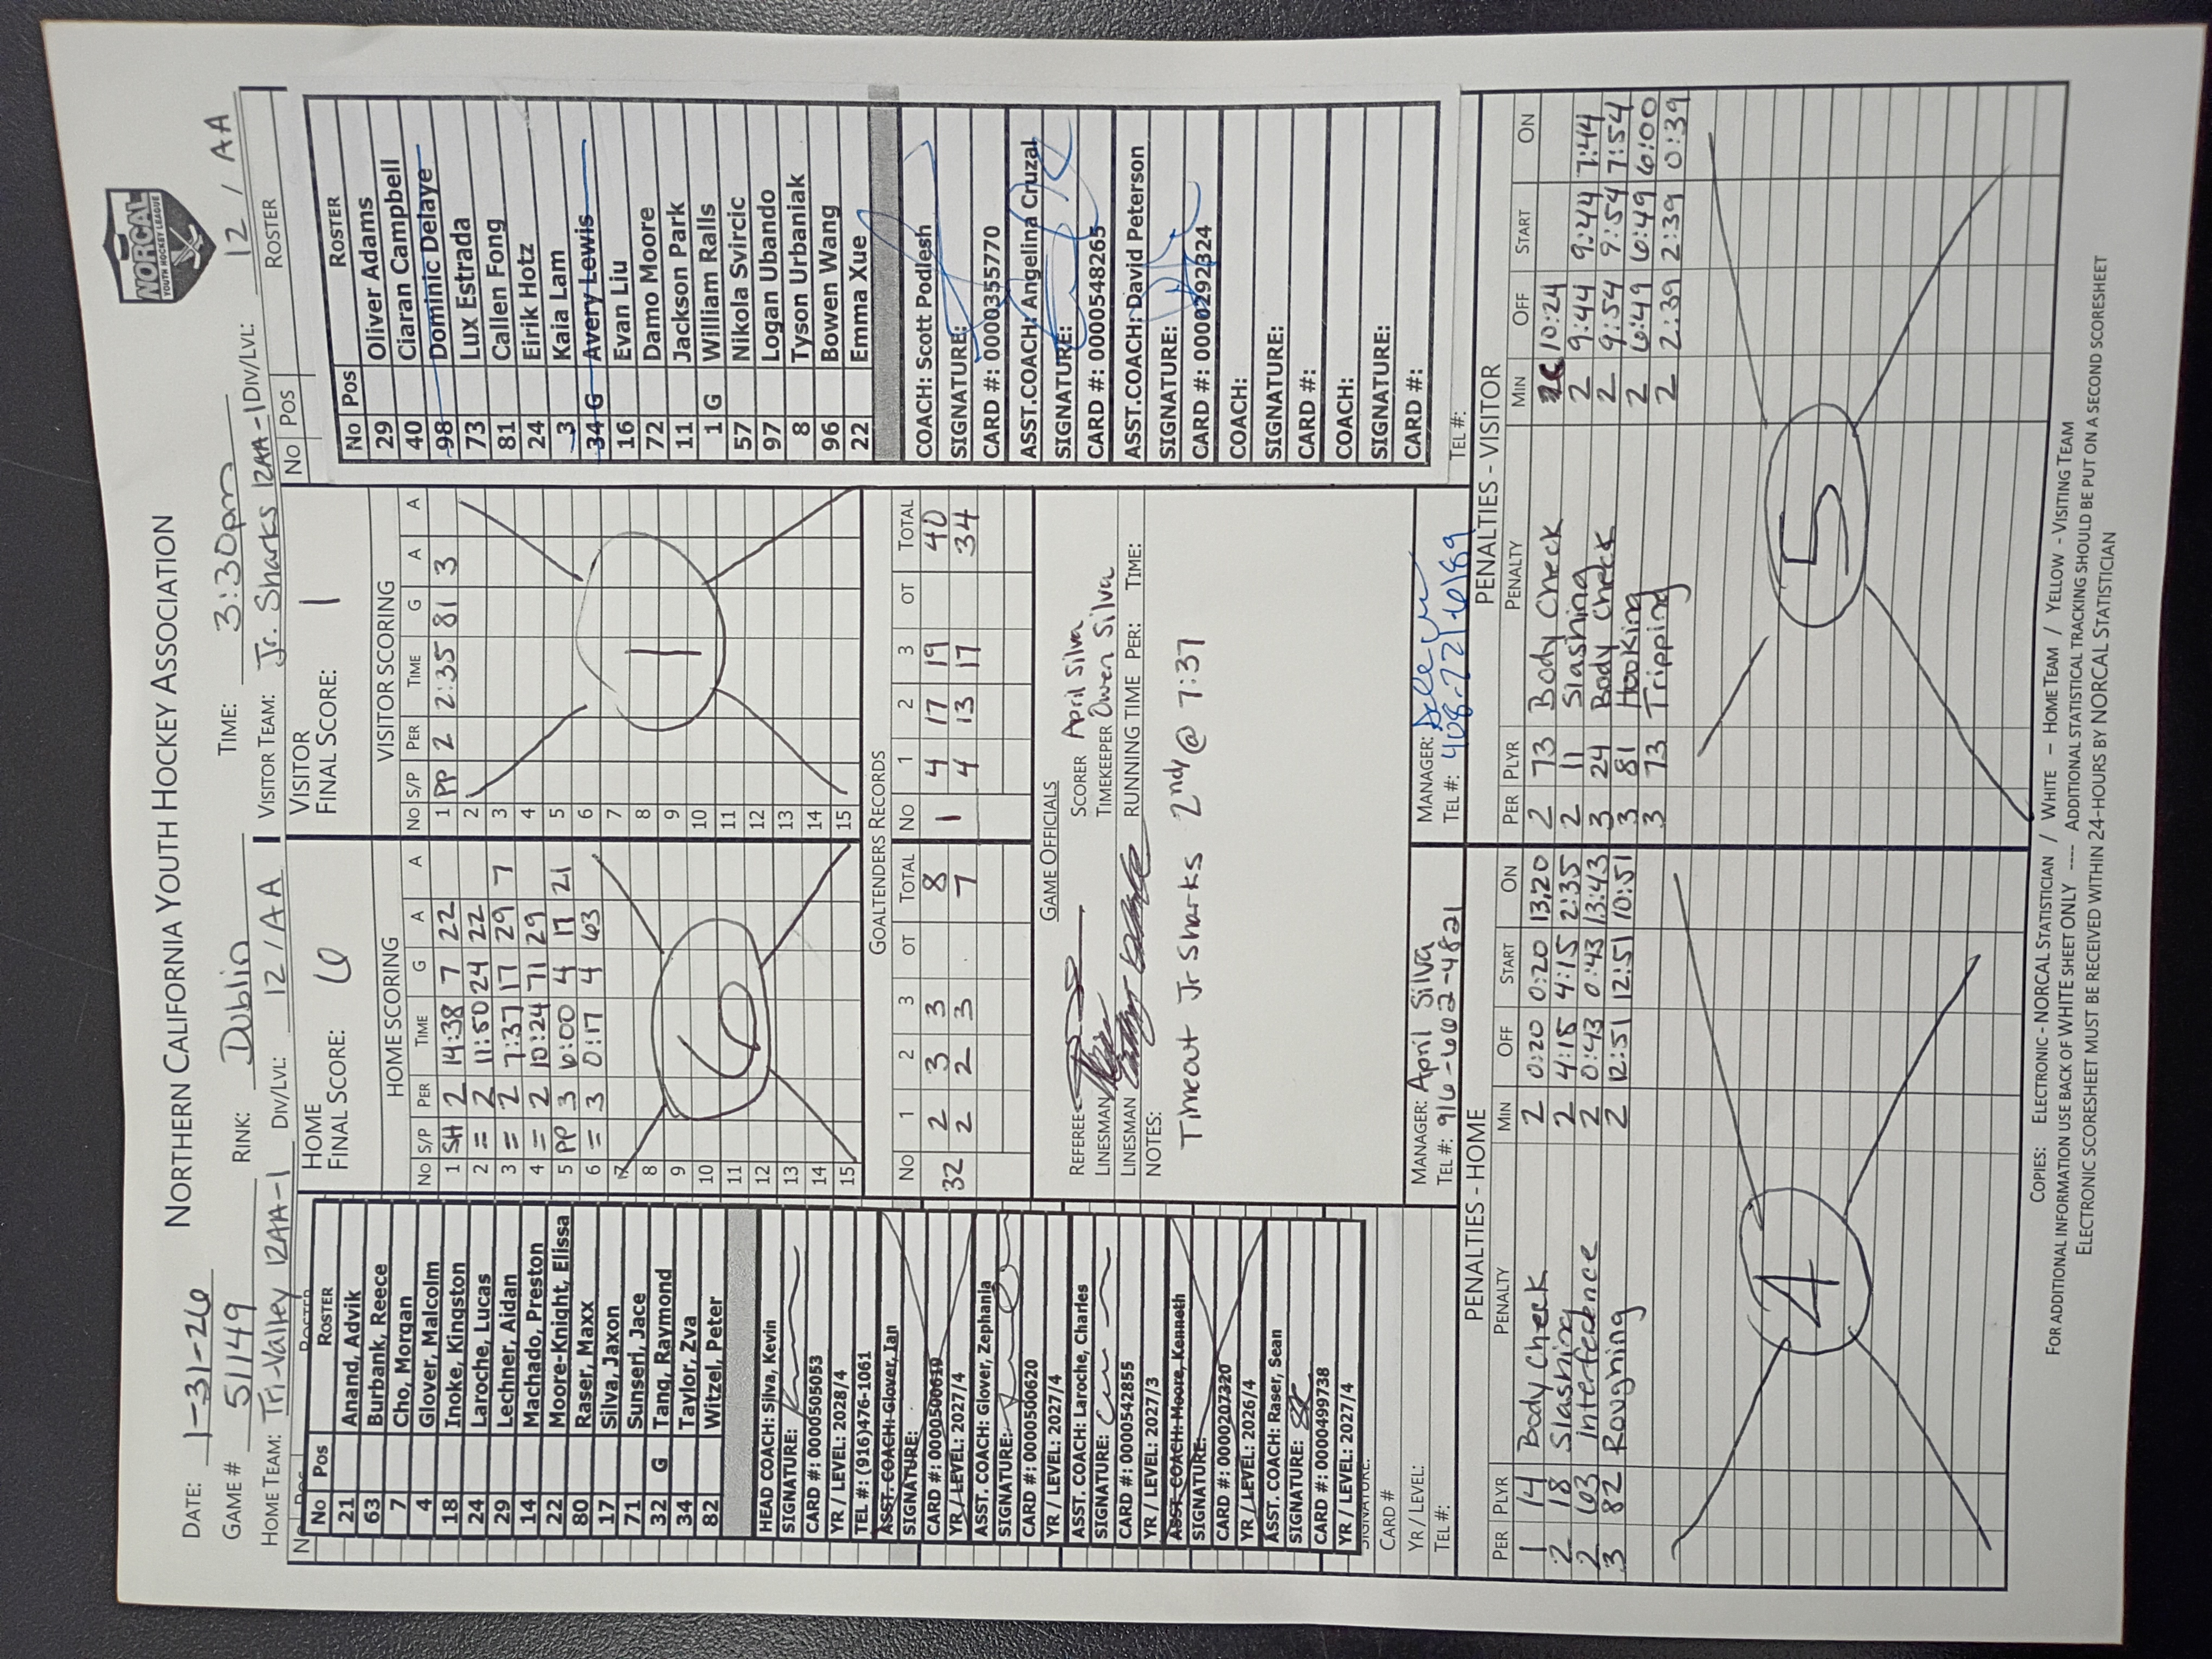 NORCAL
YOUTH HOCKEY LEAGUE
NORTHERN CALIFORNIA YOUTH HOCKEY ASSOCIATION
DATE: 1-31-26
GAME # 51149 RINK: Dublin TIME: 3:30pm
HOME TEAM: Tri-Valley 12AA-1 DIV/LVL: 12/AA VISITOR TEAM: Jr. Sharks 12AA-1 DIV/LVL: 12/AA
No Pos ROSTER
No Pos ROSTER
21 Anand, Advik
63 Burbank, Reece
7 Cho, Morgan
4 Glover, Malcolm
18 Inoke, Kingston
24 Laroche, Lucas
29 Lechner, Aidan
14 Machado, Preston
22 Moore-Knight, Elissa
80 Raser, Maxx
17 Silva, Jaxon
71 Sunseri, Jace
32 G Tang, Raymond
34 Taylor, Zva
82 Witzel, Peter
HEAD COACH: Silva, Kevin
SIGNATURE:
CARD #: 0000505053
YR / LEVEL: 2028/4
TEL #: (916)476-1061
ASST. COACH: Glover, Ian
SIGNATURE:
CARD #: 0000500619
YR / LEVEL: 2027/4
ASST. COACH: Glover, Zephania
SIGNATURE:
CARD #: 0000500620
YR / LEVEL: 2027/4
ASST. COACH: Laroche, Charles
SIGNATURE:
CARD #: 0000542855
YR / LEVEL: 2027/3
ASST. COACH: Moore, Kenneth
SIGNATURE:
CARD #: 0000207320
YR / LEVEL: 2026/4
ASST. COACH: Raser, Sean
SIGNATURE: SR
CARD #: 0000499738
YR / LEVEL: 2027/4
SIGNATURE:
CARD #
YR / LEVEL:
TEL #:
HOME
FINAL SCORE: 6
HOME SCORING
No S/P PER TIME G A A
1 SH 2 14:38 7 22
2 = 2 11:50 24 22
3 = 2 7:37 17 29 7
4 = 2 10:24 71 29
5 PP 3 6:00 4 17 21
6 = 3 0:17 4 63
7
8
9
10
11
12
13
14
15
6
VISITOR
FINAL SCORE: 1
VISITOR SCORING
No S/P PER TIME G A A
1 PP 2 2:35 81 3
2
3
4
5
6
7
8
9
10
11
12
13
14
15
1
GOALTENDERS RECORDS
No 1 2 3 OT TOTAL No 1 2 3 OT TOTAL
32 2 3 3 8 1 4 17 19 40
2 2 3 7 4 13 17 34
GAME OFFICIALS
REFEREE SCORER April Silva
LINESMAN TIMEKEEPER Owen Silva
LINESMAN RUNNING TIME PER: TIME:
NOTES:
Timeout Jr Sharks 2nd @ 7:37
MANAGER: April Silva
TEL #: 916-662-4821
MANAGER:
TEL #: 408-721-6189
No Pos ROSTER
No Pos ROSTER
29 Oliver Adams
40 Ciaran Campbell
98 Dominic Delaye
73 Lux Estrada
81 Callen Fong
24 Eirik Hotz
3 Kaia Lam
34 G Avery Lewis
16 Evan Liu
72 Damo Moore
11 Jackson Park
1 G William Ralls
57 Nikola Svircic
97 Logan Ubando
8 Tyson Urbaniak
96 Bowen Wang
22 Emma Xue
COACH: Scott Podlesh
SIGNATURE:
CARD #: 0000355770
ASST.COACH: Angelina Cruzal
SIGNATURE:
CARD #: 0000548265
ASST.COACH: David Peterson
SIGNATURE:
CARD #: 0000292324
COACH:
SIGNATURE:
CARD #:
COACH:
SIGNATURE:
CARD #:
TEL #:
PENALTIES - HOME
PER PLYR PENALTY MIN OFF START ON
1 14 Body Check 2 0:20 0:20 13:20
2 18 Slashing 2 4:15 4:15 2:35
2 63 interfecence 2 0:43 0:43 13:43
3 82 Roughing 2 12:51 12:51 10:51
4
PENALTIES - VISITOR
PER PLYR PENALTY MIN OFF START ON
2 73 Body Check 10:24
2 11 Slashing 2 9:44 9:44 7:44
3 24 Body Check 2 9:54 9:54 7:54
3 81 Hooking 2 6:49 6:49 6:00
3 73 Tripping 2 2:39 2:39 0:39
5
COPIES: ELECTRONIC - NORCAL STATISTICIAN / WHITE - HOME TEAM / YELLOW - VISITING TEAM
FOR ADDITIONAL INFORMATION USE BACK OF WHITE SHEET ONLY ---- ADDITIONAL STATISTICAL TRACKING SHOULD BE PUT ON A SECOND SCORESHEET
ELECTRONIC SCORESHEET MUST BE RECEIVED WITHIN 24-HOURS BY NORCAL STATISTICIAN